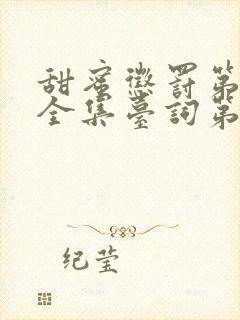 甜蜜懲罰第
全集臺詞第
纪莹